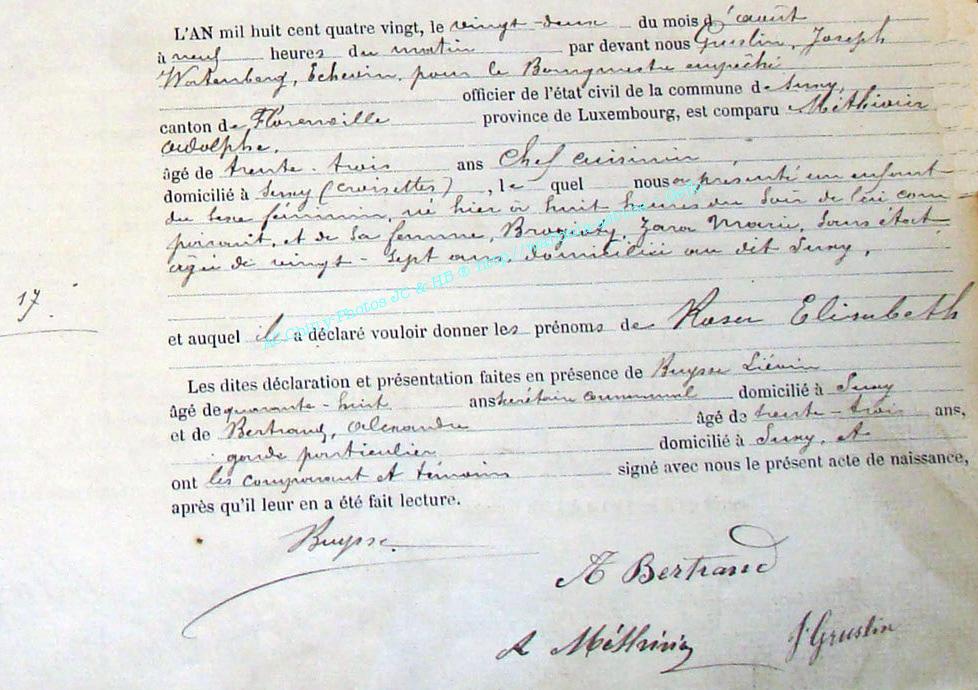 L'AN mil huit cent quatre vingt, le vingt-deux du mois d'août
à neuf heures du matin par devant nous Gruslin, Joseph
Echevin, pour le Bourgmestre empêché
officier de l'état civil de la commune de Suxy,
canton de Florenville province de Luxembourg, est comparu
Adolphe,
âgé de trente-trois ans Chef cuisinier,
domicilié à Suxy (Croisettes), le quel nous a présenté un enfant
du sexe féminin, né hier à huit heures du soir de lui com
parant, et de sa femme, Marie, sans état
agée de vingt-sept ans domiciliée au dit Suxy,
17.
et auquel il a déclaré vouloir donner les prénoms de Elisabeth
Les dites déclaration et présentation faites en présence de Buysse Liévin
âgé de quarante-huit ans secrétaire communal domicilié à Suxy
et de Bertrand, Alexandre âgé de trente-trois ans,
garde particulier domicilié à Suxy, et
ont les comparant et témoins signé avec nous le présent acte de naissance,
après qu'il leur en a été fait lecture.
Buysse.
A Bertrand
A
J Gruslin